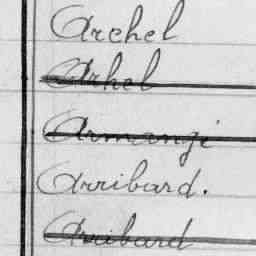 Archel
Arhel
Armangé
Arribard.
Arribard